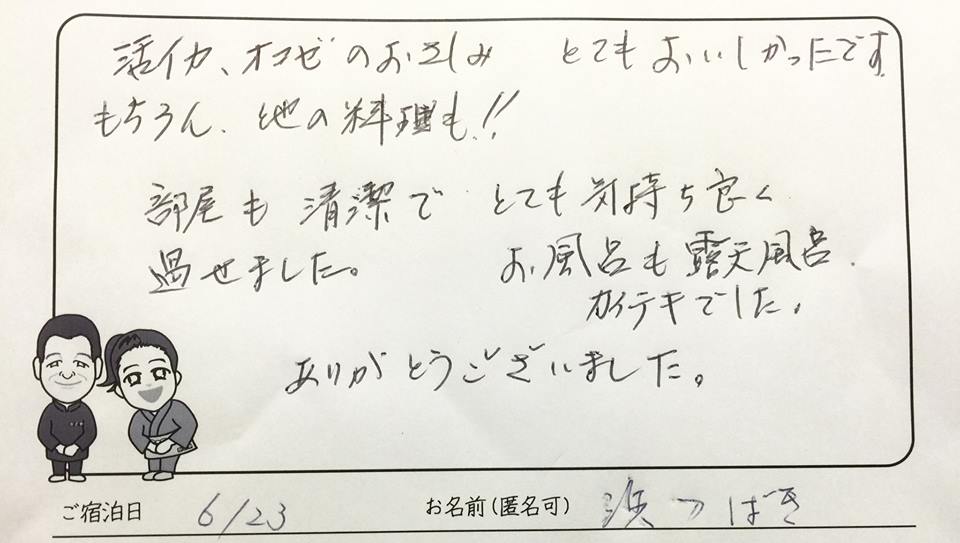 活イカ、オコゼのおさしみ とてもおいしかったです
もちろん、他の料理も!!
部屋も清潔で とても気持ち良く
過せました。 お風呂も露天風呂
カイテキでした。
ありがとうございました。
ご宿泊日 6/23 お名前(匿名可) 浜つばき